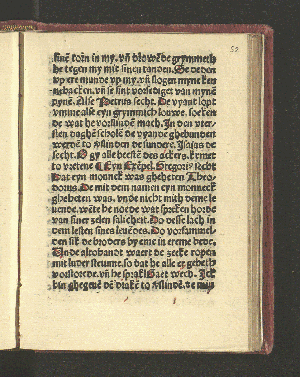 52
sinē torn in my. vñ drowede grymmeth
he tegen my mit sinen tanden. Se deden
vp ere munde vp my. vñ slogen myne kēn
nebacken. vñ se sint vorsediget van mynē
pyne. Alse Petrus secht. De vyant lopt
vmme alse eyn grymmich louwe. soeken
de wat he vorslinden mach. In den vter
sten daghē scholē de vyande ghebunden
werdē to vslinden de sundere. Isaias de
secht. O gy alle beeste des ackers. kemet
to vretene Eyn Exēpel. Gregori9 secht
Dat eyn monnick was gheheten Theo
dorus. De mit dem namen eyn monneck
gheheten was. vnde nicht mith deme le
uende. wēte he noede wat spreken horde
van siner zelen salicheit. Do desse lach in
dem lesten sines leuēdes. Do vorsammel
den sik de broders by eme in ereme bede.
Unde altohandt waert he zeeke ropen
mit luder stemme. so dat he alle er gebeth
vorstorede. vñ he sprak Gaet wech. Ick
bin ghegeuē dē drakē to vslindē. de my